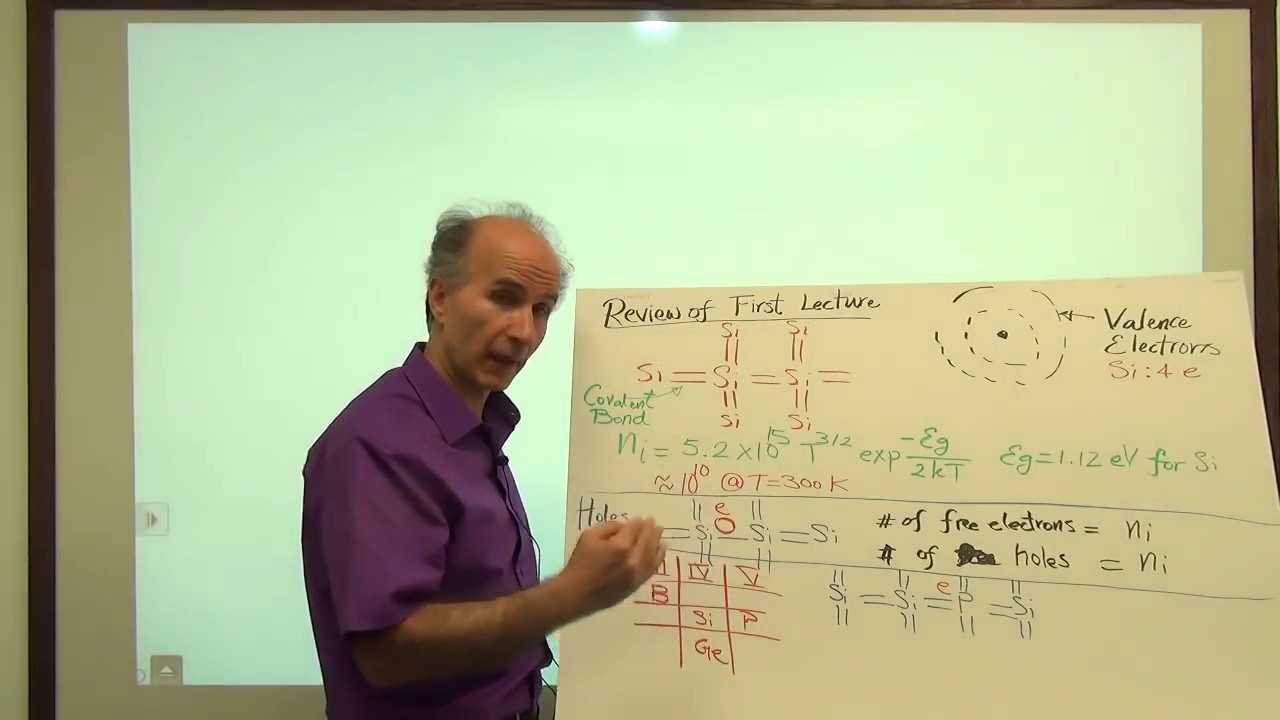 Review of First Lecture
Si Si
Si = Si = Si =
Si Si
Covalent
Bond
Valence
Electrons
Si : 4 e
ni = 5.2 x 10^15 T^3/2 exp -Eg/2kT Eg = 1.12 eV for Si
≈ 10^10 @ T = 300 K
Holes
e
= Si O Si = Si
# of free electrons = ni
# of holes = ni
IV V
B
Si P
Ge
e
Si = Si = P = Si